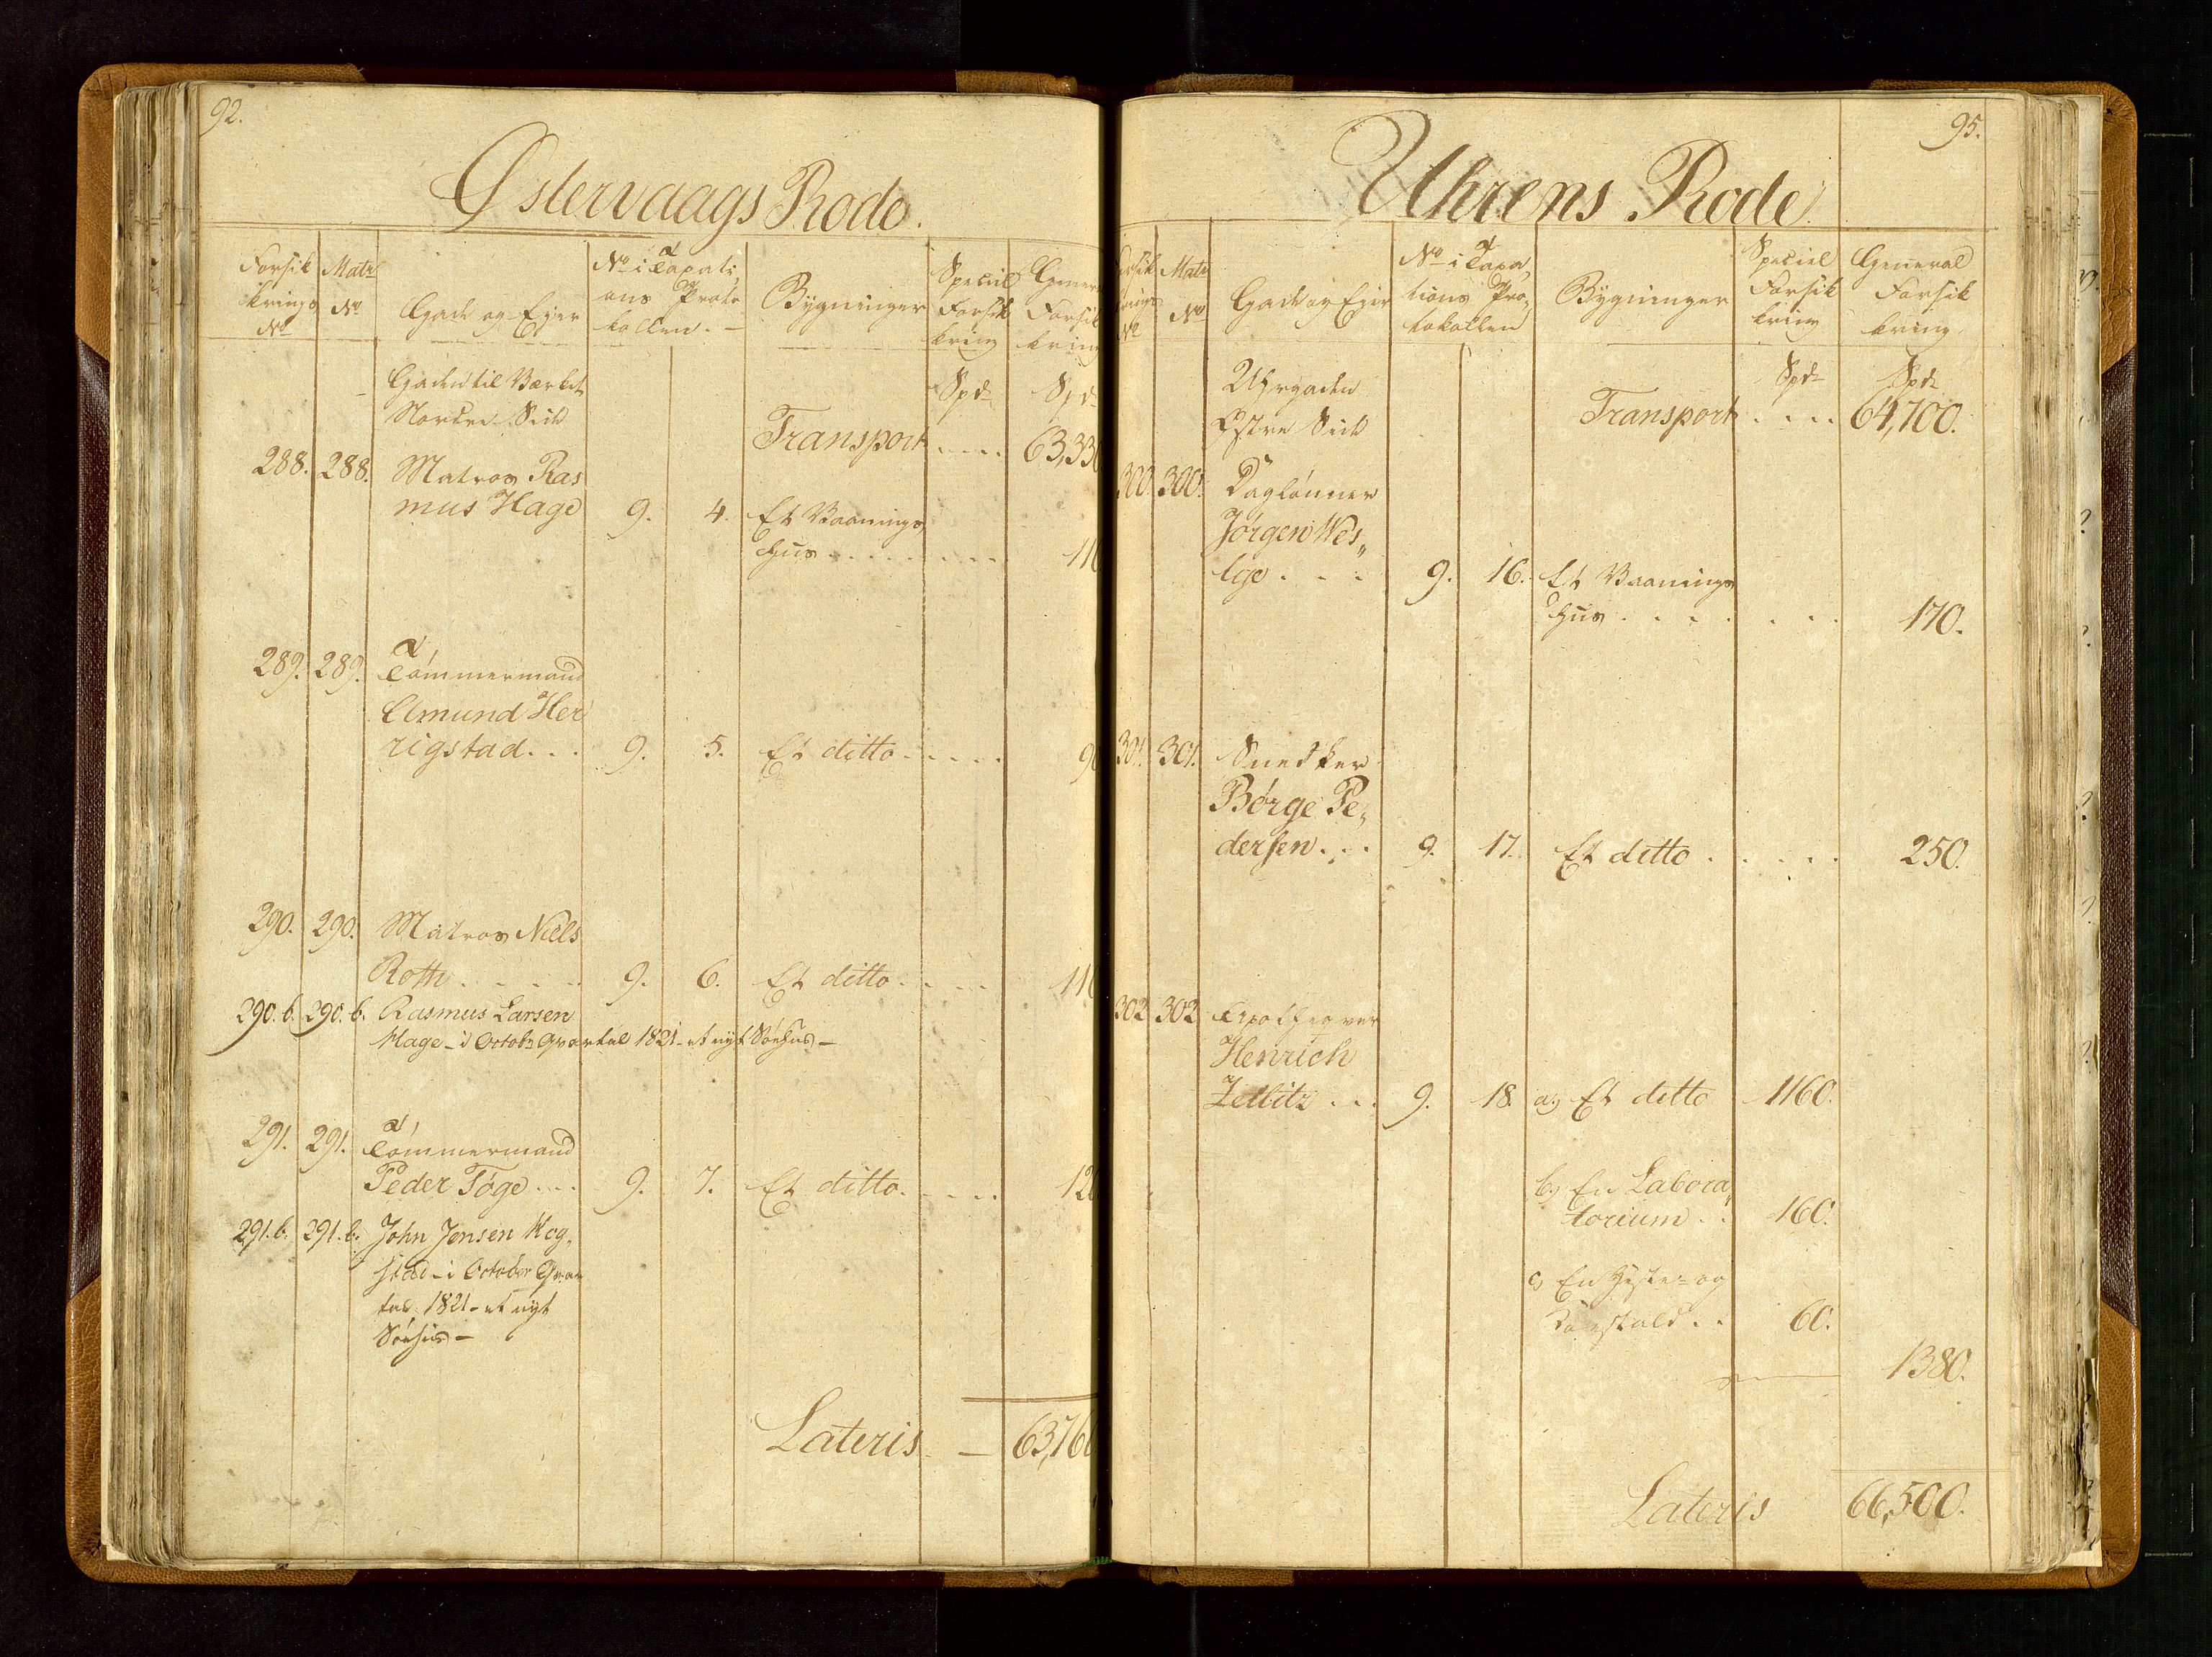 92.
Østervaags Rode.
Forsik
krings
No
Matr
No
Gade og Eyer
No i Taxati
ons Proto
kollen.
Bygninger
Speciel
Forsik
kring
Gener
Forsik
kring
Gaden til Værket
Nordre Side
Spd
Spd
Transport .... 63,330
288. 288. Matros Ras
mus Hage 9. 4. Et Vaanings
Huus ....... 110
289. 289. Tømmermand
Amund Her
rigstad... 9. 5. Et ditto..... 90
290. 290. Matros Niels
Roth..... 9. 6. Et ditto.... 110
290.b. 290.b. Rasmus Larsen
Hage - i Octobr Qvartal 1821 - et nyt Søehus -
291. 291. Tømmermand
Peder Føge... 9. 7. Et ditto.... 120
291.b. 291.b. John Jensen Kog
stad - i October Qvar
tal 1821 - et nyt
Søehus -
Lateris - 63,760
95.
Uhrens Rode
Forsik
krings
No
Matr
No
Gade og Eyer
No i Taxa
tions Pro
tokollen
Bygninger
Speciel
Forsik
kring
General
Forsik
kring
Uhrgaden
Østre Side
Spd
Spd
Transport .... 64,700.
300. 300. Daglønner
Jørgen Wes„
lye... 9. 16. Et Vaanings
Huus ....... 170.
301. 301. Snedker
Børge Pe„
dersen... 9. 17. Et ditto ..... 250.
302 302 Apotheqver
Henrich
Zetlitz... 9. 18. a, Et ditto 1160.
b, En Labora„
torium.. 160.
c, En Heste- og
Koestald.. 60.
1380.
Lateris 66,500.